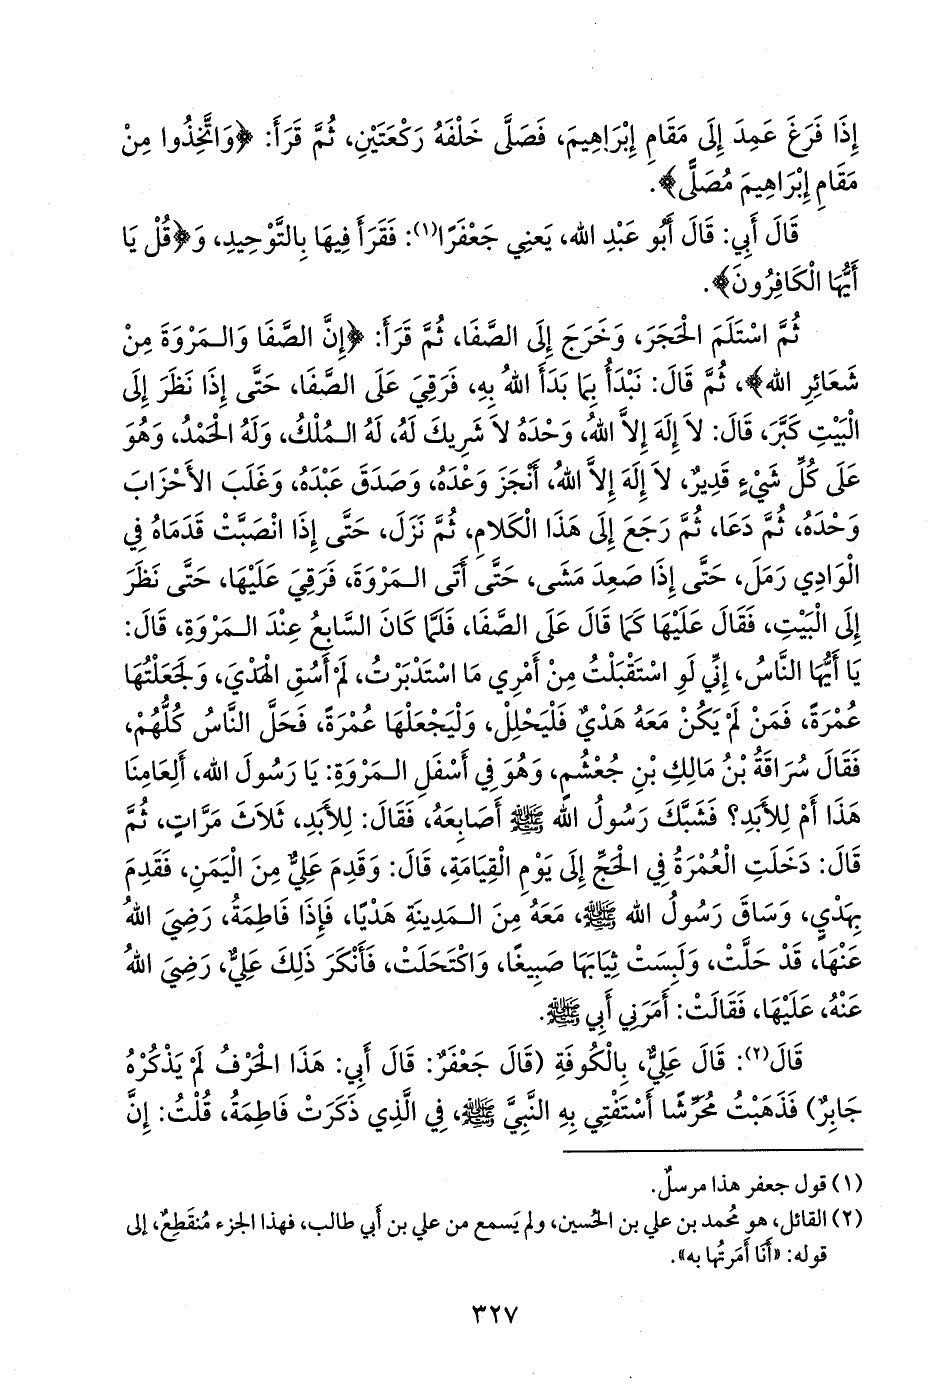 إِذَا فَرَغَ عَمِدَ إِلَى مَقَامِ إِبْرَاهِيمَ، فَصَلَّى خَلْفَهُ رَكْعَتَيْنِ، ثُمَّ قَرَأَ: ﴿وَاتَّخِذُوا مِنْ
مَقَامِ إِبْرَاهِيمَ مُصَلًّى﴾.
قَالَ أَبِي: قَالَ أَبُو عَبْدِ اللهِ، يَعنِي جَعْفَرًا(١): فَقَرَأَ فِيهَا بِالتَّوْحِيدِ، وَ﴿قُلْ يَا
أَيُّهَا الْكَافِرُونَ﴾.
ثُمَّ اسْتَلَمَ الْحَجَرَ، وَخَرَجَ إِلَى الصَّفَا، ثُمَّ قَرَأَ: ﴿إِنَّ الصَّفَا وَالـمَرْوَةَ مِنْ
شَعَائِرِ اللهِ﴾، ثُمَّ قَالَ: نَبْدَأُ بِمَا بَدَأَ اللهُ بِهِ، فَرَقِيَ عَلَى الصَّفَا، حَتَّى إِذَا نَظَرَ إِلَى
الْبَيْتِ كَبَّرَ، قَالَ: لاَ إِلَهَ إِلاَّ اللهُ، وَحْدَهُ لاَ شَرِيكَ لَهُ، لَهُ الـمُلْكُ، وَلَهُ الْحَمْدُ، وَهُوَ
عَلَى كُلِّ شَيْءٍ قَدِيرٌ، لاَ إِلَهَ إِلاَّ اللهُ، أَنْجَزَ وَعْدَهُ، وَصَدَقَ عَبْدَهُ، وَغَلَبَ الأَحْزَابَ
وَحْدَهُ، ثُمَّ دَعَا، ثُمَّ رَجَعَ إِلَى هَذَا الْكَلاَمِ، ثُمَّ نَزَلَ، حَتَّى إِذَا انْصَبَّتْ قَدَمَاهُ فِي
الْوَادِي رَمَلَ، حَتَّى إِذَا صَعِدَ مَشَى، حَتَّى أَتَى الـمَرْوَةَ، فَرَقِيَ عَلَيْهَا، حَتَّى نَظَرَ
إِلَى الْبَيْتِ، فَقَالَ عَلَيْهَا كَمَا قَالَ عَلَى الصَّفَا، فَلَمَّا كَانَ السَّابِعُ عِنْدَ الـمَرْوَةِ، قَالَ:
يَا أَيُّهَا النَّاسُ، إِنِّي لَوِ اسْتَقْبَلْتُ مِنْ أَمْرِي مَا اسْتَدْبَرْتُ، لَمْ أَسُقِ الْهَدْيَ، وَلَجَعَلْتُهَا
عُمْرَةً، فَمَنْ لَمْ يَكُنْ مَعَهُ هَدْيٌ فَلْيَحْلِلْ، وَلْيَجْعَلْهَا عُمْرَةً، فَحَلَّ النَّاسُ كُلُّهُمْ،
فَقَالَ سُرَاقَةُ بْنُ مَالِكِ بْنِ جُعْشُمٍ، وَهُوَ فِي أَسْفَلِ الـمَرْوَةِ: يَا رَسُولَ اللهِ، أَلِعَامِنَا
هَذَا أَمْ لِلأَبَدِ؟ فَشَبَّكَ رَسُولُ اللهِ ﷺ أَصَابِعَهُ، فَقَالَ: لِلأَبَدِ، ثَلاَثَ مَرَّاتٍ، ثُمَّ
قَالَ: دَخَلَتِ الْعُمْرَةُ فِي الْحَجِّ إِلَى يَوْمِ الْقِيَامَةِ، قَالَ: وَقَدِمَ عَلِيٌّ مِنَ الْيَمَنِ، فَقَدِمَ
بِهَدْيٍ، وَسَاقَ رَسُولُ اللهِ ﷺ، مَعَهُ مِنَ الـمَدِينَةِ هَدْيًا، فَإِذَا فَاطِمَةُ، رَضِيَ اللهُ
عَنْهَا، قَدْ حَلَّتْ، وَلَبِسَتْ ثِيَابَهَا صَبِيغًا، وَاكْتَحَلَتْ، فَأَنْكَرَ ذَلِكَ عَلِيٌّ، رَضِيَ اللهُ
عَنْهُ، عَلَيْهَا، فَقَالَتْ: أَمَرَنِي أَبِي ﷺ.
قَالَ(٢): قَالَ عَلِيٌّ، بِالْكُوفَةِ (قَالَ جَعْفَرٌ: قَالَ أَبِي: هَذَا الْحَرْفُ لَمْ يَذْكُرْهُ
جَابِرٌ) فَذَهَبْتُ مُحَرِّشًا أَسْتَفْتِي بِهِ النَّبِيَّ ﷺ، فِي الَّذِي ذَكَرَتْ فَاطِمَةُ، قُلْتُ: إِنَّ
(١) قول جعفر هذا مرسلٌ.
(٢) القائل، هو مُحمد بن علي بن الحُسين، ولم يَسمع من علي بن أَبي طالب، فهذا الجزء مُنقَطِعٌ، إلى
قوله: «أَنَا أَمَرتُها به».
٣٢٧